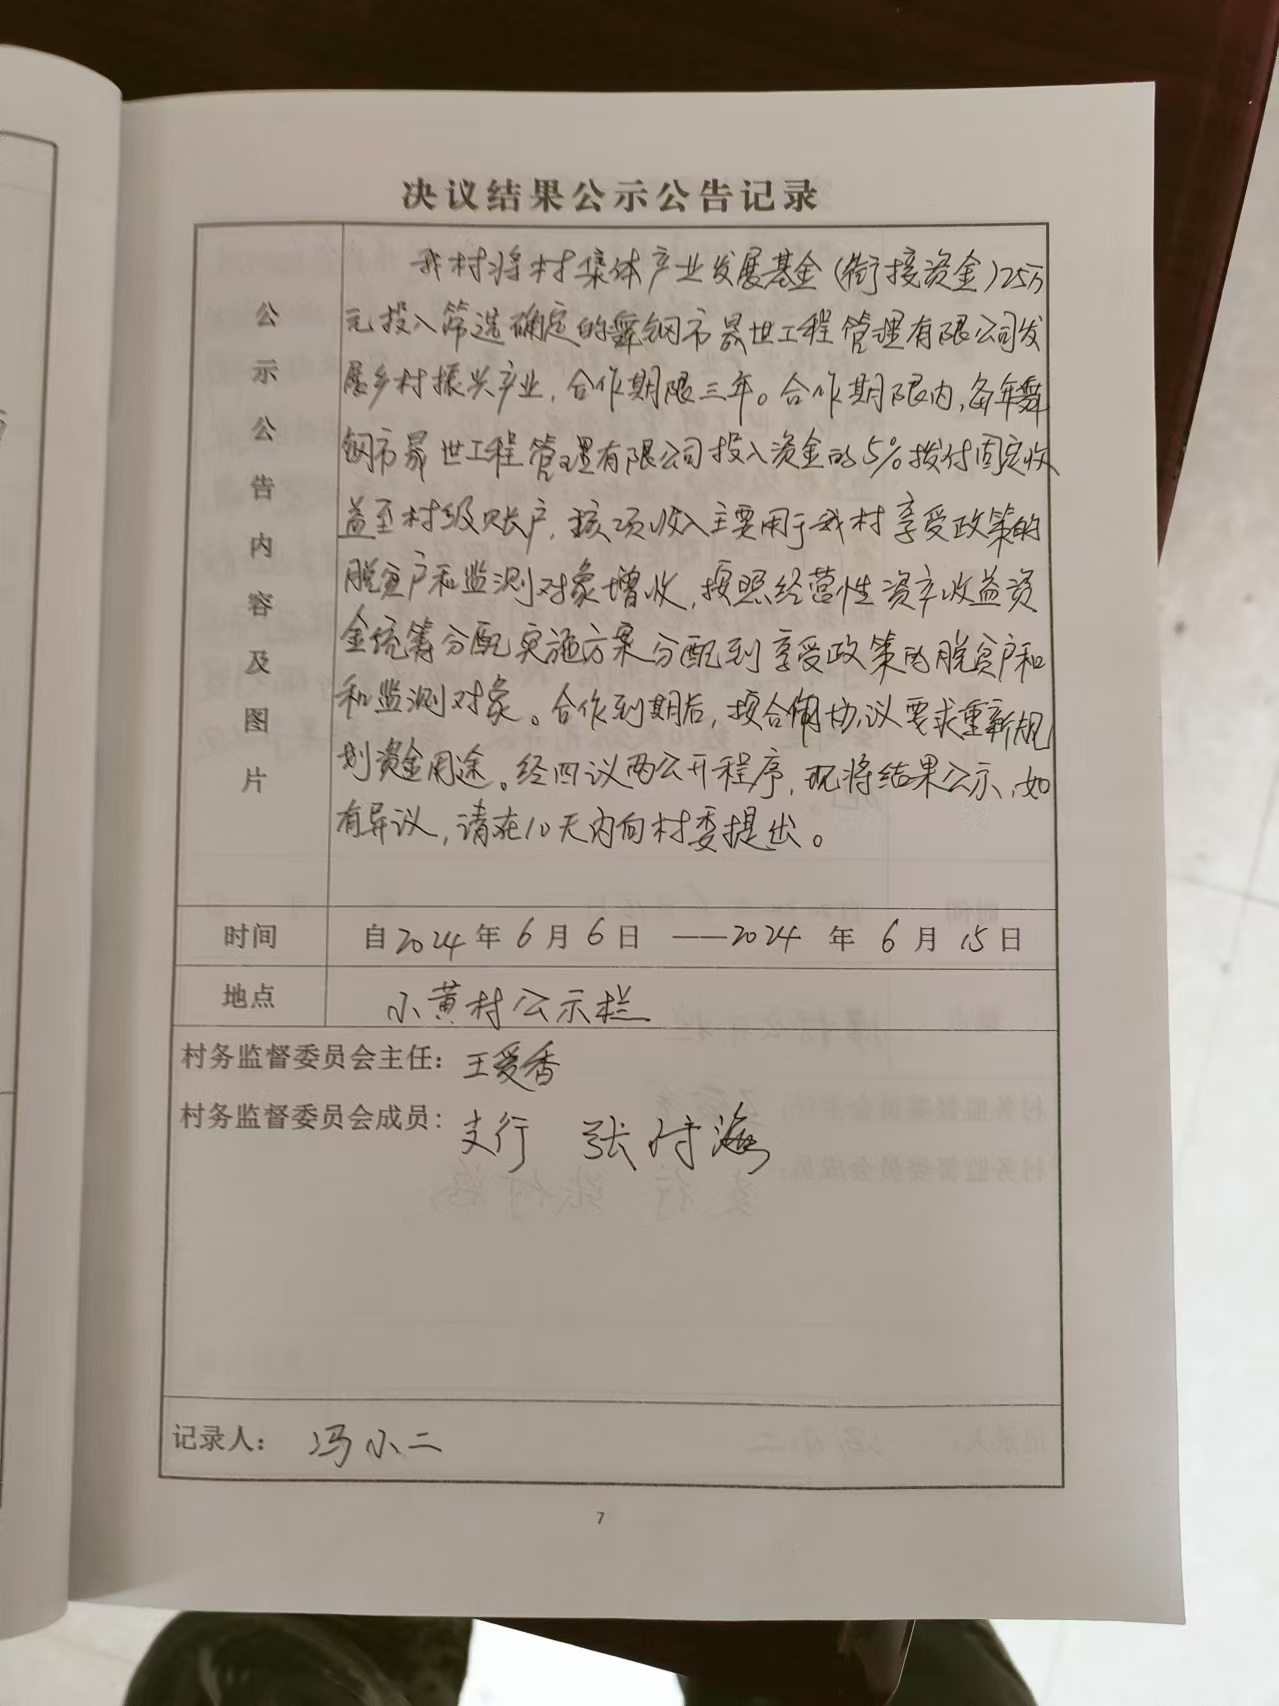 决议结果公示公告记录
公示公告内容及图片
我村将村集体产业发展基金(衔接资金)25万
元投入筛选确定的舞钢市晟世工程管理有限公司发
展乡村振兴产业，合作期限三年。合作期限内，每年舞
钢市晟世工程管理有限公司投入资金的5%拨付固定收
益至村级账户，该项收入主要用于我村享受政策的
脱贫户和监测对象增收，按照经营性资产收益资
金统筹分配实施方案分配到享受政策的脱贫户和
和监测对象。合作到期后，按合作协议要求重新规
划资金用途。经四议两公开程序，现将结果公示，如
有异议，请在10天内向村委提出。
时间 自2024年6月6日——2024年6月15日
地点 小黄村公示栏
村务监督委员会主任：王爱香
村务监督委员会成员：支行 张付海
记录人：冯小二
7